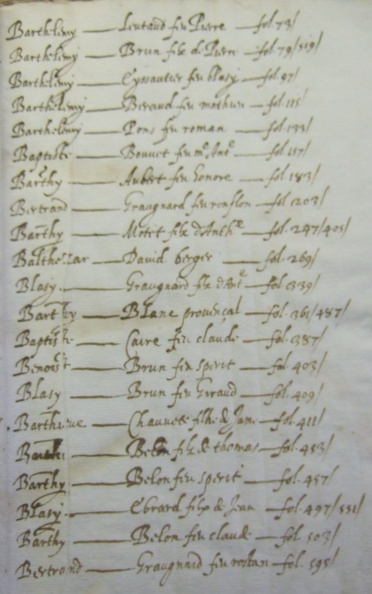 Barthelemy — Leutaud feu Pierre — fol. 73/
Barthelemy — Brun filx de Pierre — fol. 79/519/
Barthelemy — Eyssautier feu blasy — fol. 97/
Barthelemy — Beraud feu mathieu — fol. 115/
Barthelemy — Pons feu roman — fol. 133/
Baptiste — Bouvet feu me Ante — fol. 157/
Barthy — Aubert feu honore — fol. 183/
Bertrand — Graugnard feu — fol. 203/
Barthy — Motet filx d'Anthe — fol. 247/405/
Balthezar — David berger — fol. 269/
Blasy — Graugnard filx d'Ante — fol. 339/
Barthy — Blanc provençal — fol. 361/487/
Baptiste — Caire feu claude — fol. 387/
Benoest — Brun feu sperit — fol. 403/
Blasy — Brun feu Giraud — fol. 409/
— Chauvete filhe de Jame — fol. 411/
— Belon filx de thomas — fol. 453/
Barthy — Belon feu sperit — fol. 457/
Blasy — Ebrard filx de Jean — fol. 497/551/
Barthy — Belon feu claude — fol. 503/
Bertrand — Graugnard feu rostan — fol. 595/